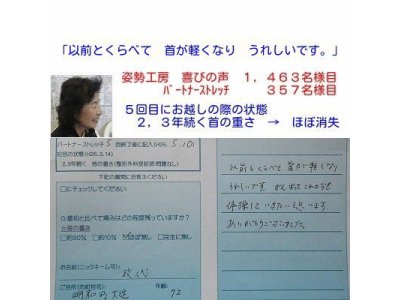 「以前とくらべて　首が軽くなり　うれしいです。」
姿勢工房　喜びの声　１，４６３名様目
パートナーストレッチ　３５７名様目
５回目にお越しの際の状態
２，３年続く首の重さ　→　ほぼ消失
パートナーストレッチ 5 回終了後に記入(H26.5.10)
初回の状態(H26.3.14)
2,3年続く　首の重さ(整形外科受診済:問題なし)
下記の質問にお答えください
□にチェックしてください
Q.最初と比べて痛みはどの程度残っていますか?
☆首の重さ
□約30% □約10% ☑ほぼ無し □完全に無し
お名前(ニックネーム可)
ご住所(市町村名)
年齢
72
以前とくらべて 首が軽くなり
うれしいです
いきたいと思います
ありがとうございました。